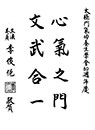 太極門氣功養生學會60週年慶
心氣之門
文武合一
立法委員
李俊俋
敬賀